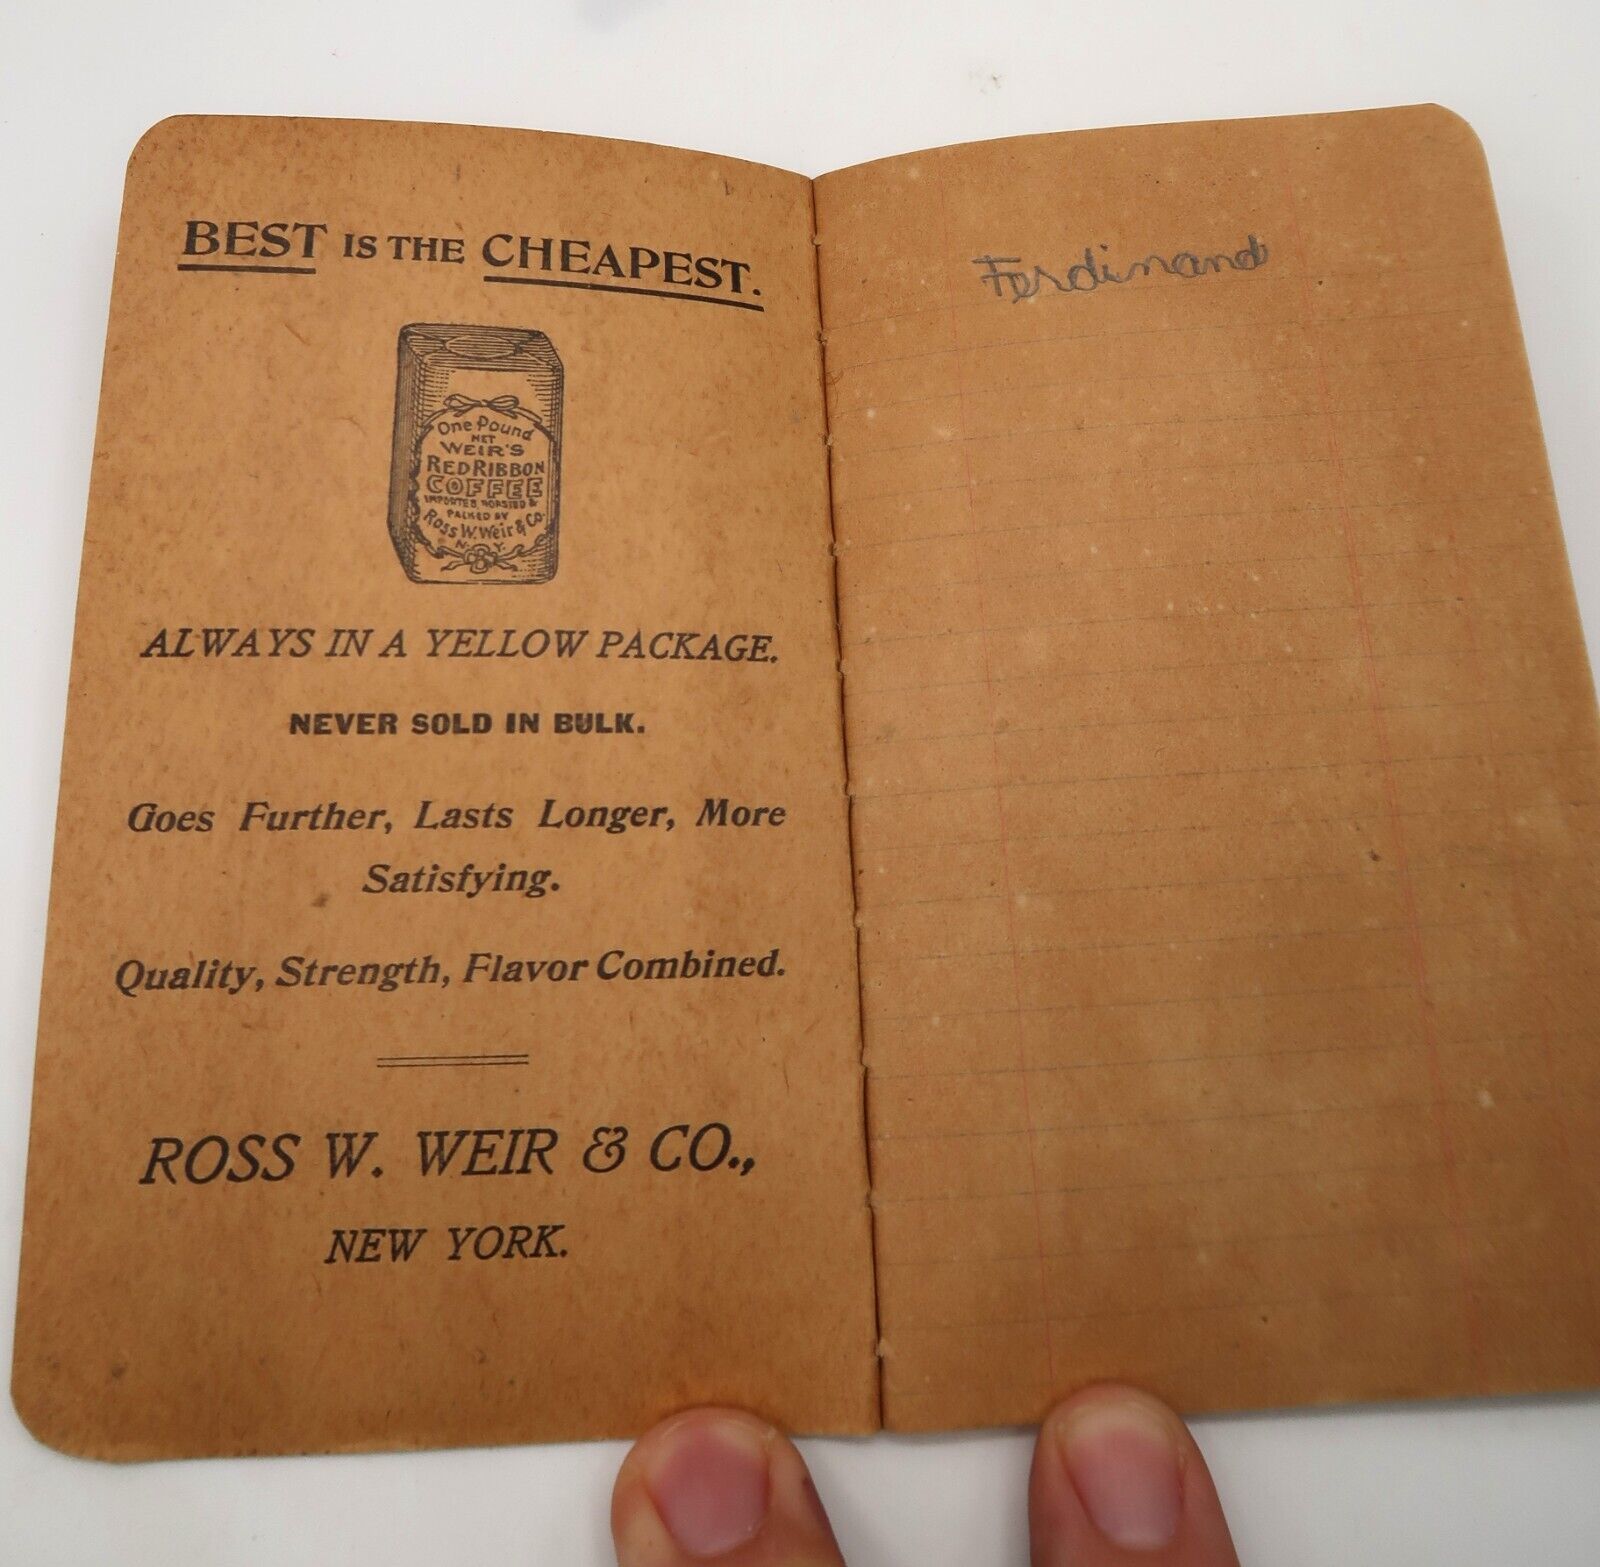 BEST IS THE CHEAPEST.
One Pound
NET
WEIR'S
RED RIBBON
COFFEE
IMPORTED, ROASTED &
PACKED BY
Ross W. Weir & Co.
N.Y.
ALWAYS IN A YELLOW PACKAGE.
NEVER SOLD IN BULK.
Goes Further, Lasts Longer, More
Satisfying.
Quality, Strength, Flavor Combined.
ROSS W. WEIR & CO.,
NEW YORK.
Ferdinand